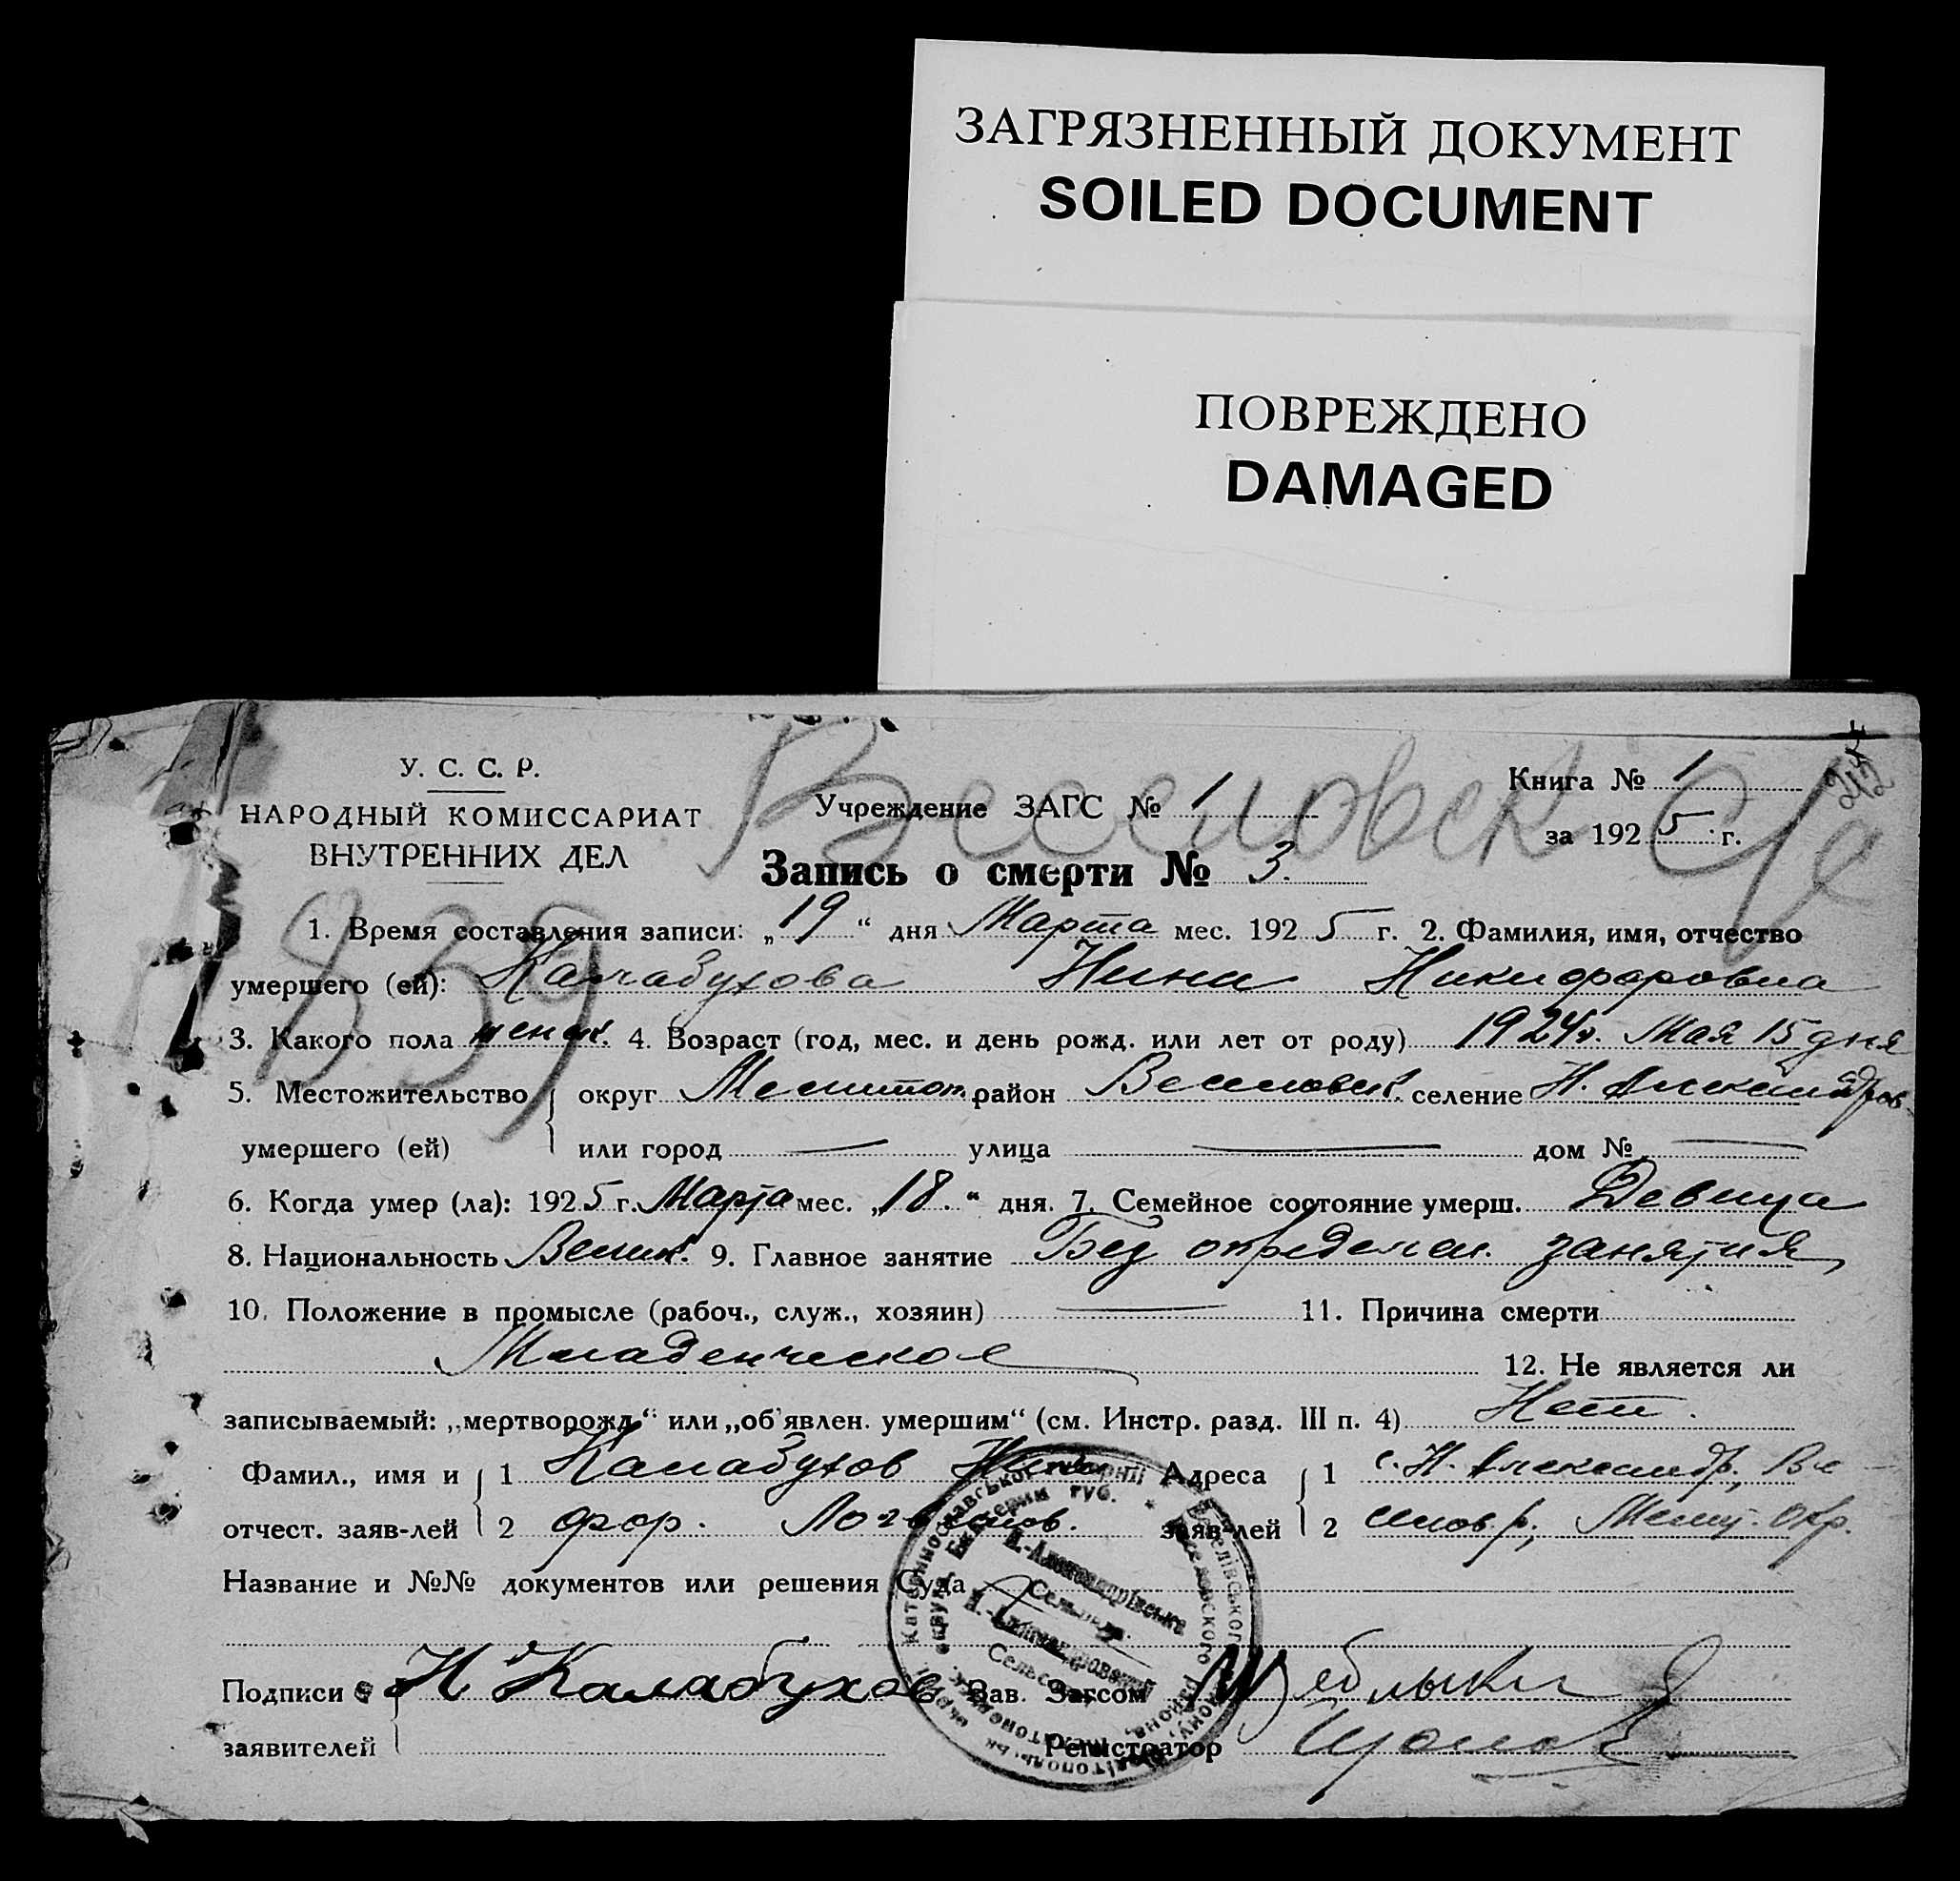 ЗАГРЯЗНЕННЫЙ ДОКУМЕНТ
SOILED DOCUMENT
ПОВРЕЖДЕНО
DAMAGED
У. С. С. Р.
НАРОДНЫЙ КОМИССАРИАТ
ВНУТРЕННИХ ДЕЛ
Веселовск
839
Учреждение ЗАГС № 1
Книга № 1
за 1925 г.
Запись о смерти № 3.
1. Время составления записи: „19“ дня Марта мес. 1925 г. 2. Фамилия, имя, отчество
умершего (ей): Калабухова Нина Никифоровна
3. Какого пола женск. 4. Возраст (год, мес. и день рожд. или лет от роду) 1924г. Мая 15 дня
5. Местожительство округ Мелитоп. район Веселовск. селение Н. Александров
умершего (ей) или город — улица — дом № —
6. Когда умер (ла): 1925 г. Марта мес. „18.“ дня. 7. Семейное состояние умерш. Девица
8. Национальность Велик. 9. Главное занятие Без определен. занятия
10. Положение в промысле (рабоч., служ., хозяин) — 11. Причина смерти
Младенческое 12. Не является ли
записываемый: „мертворожд.“ или „об'явлен. умершим“ (см. Инстр. разд. III п. 4) Нет.
Фамил., имя и 1 Калабухов Ники Адреса 1 с. Н. Александр., Ве-
отчест. заяв-лей 2 фор. заяв-лей 2 селов. р., Мелит. окр.
Название и №№ документов или решения Суда
Подписи Н Калабухов Зав. Загсом
заявителей Регистратор